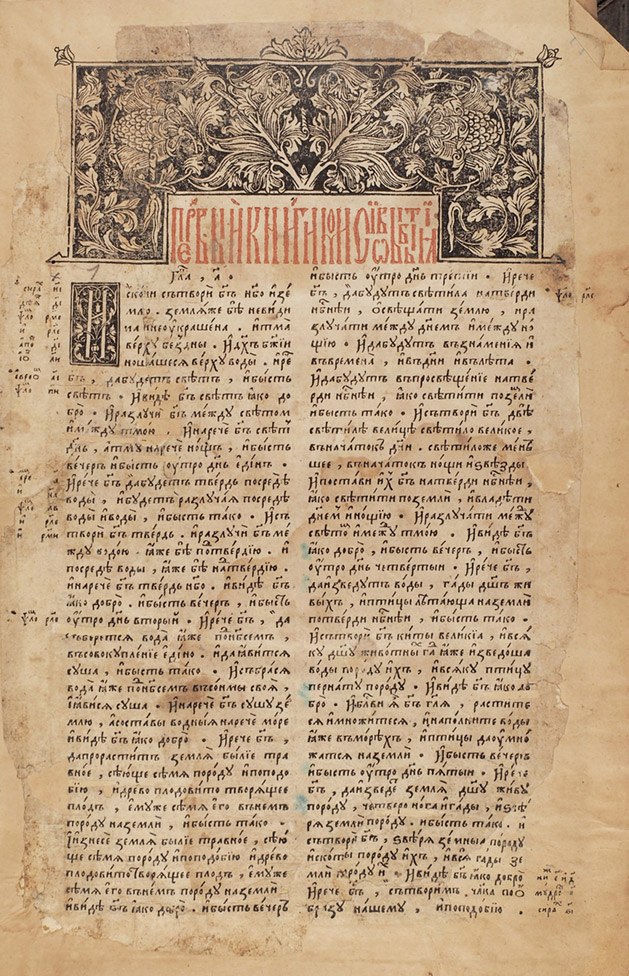 прьвыи книги моисиѡвы бытїа
Гла҃, а҃ ·
Искони сътвори бг҃ъ нб҃о и зе
млю . земля же бѣ невиди
ма и неоукрашена . и тма
верхꙋ бездны . и дх҃ъ бж҃їи
ношашеся верхꙋ воды . и рече
бг҃ъ , да бꙋдетъ свѣтъ , и бысть
свѣтъ · И видѣ бг҃ъ свѣтъ ꙗко до
бро · И разлꙋчи бг҃ъ междꙋ свѣтом
и междꙋ тмою . И нарече бг҃ъ свѣтъ
дн҃ь , а тмꙋ нарече нощь , и бысть
вечеръ и бысть оутро дн҃ь единъ ·
И рече бг҃ъ да бꙋдетъ твердь посредѣ
воды , и бꙋдетъ разлꙋчая посредѣ
воды и воды , и бысть тако · И съ
твори бг҃ъ твердь . и разлꙋчи бг҃ъ ме
ждꙋ водою ꙗже бѣ под твердїю . и
посредѣ воды , ꙗже бѣ над твердїю .
и нарече бг҃ъ твердь нб҃о . и видѣ бг҃ъ
ꙗко добро . и бысть вечеръ , и бысть
оутро дн҃ь вторыи · И рече бг҃ъ , да
съберется вода ꙗже под нб҃семъ ,
въ совокꙋпленїе едино . и да ꙗвится
сꙋша , и бысть тако · И събрася
вода ꙗже под нб҃семъ въ сонмы своя ,
и ꙗвися сꙋша · И нарече бг҃ъ сꙋшꙋ зе
млю , а съставы водныя нарече море
и видѣ бг҃ъ ꙗко добро · И рече бг҃ъ ,
да прораститъ земля былїе тра
вное , сѣюще сѣмя по родꙋ и по подо
бїю , и древо плодовито творящее
плодъ , емꙋже сѣмя его въ немъ
по родꙋ на земли , и бысть тако ·
И изнесе земля былїе травное , сѣю
ще сѣмя по родꙋ и по подобїю и древо
плодовито творящее плодъ , емꙋже
сѣмя его въ немъ по родꙋ на земли
и видѣ бг҃ъ ꙗко добро . и бысть вечеръ
и бысть оутро дн҃ь третїи · И рече
бг҃ъ , да бꙋдꙋтъ свѣтила на тверди
нб҃нѣи , освѣщати землю , и ра
злꙋчати междꙋ днемъ и междꙋ но
щїю · И да бꙋдꙋтъ въ знаменїя и
въ времена , и въ дни и въ лѣта ·
И да бꙋдꙋтъ въ просвѣщенїе на тве
рди нб҃нѣи , ꙗко свѣтити по земли
и бысть тако · И сътвори бг҃ъ двѣ
свѣтилѣ велицѣ свѣтило великое ,
въ начатокъ дн҃и . свѣтило же мень
шее , въ начатокъ нощи и звѣзды
И постави ихъ бг҃ъ на тверди нб҃нѣи ,
ꙗко свѣтити по земли , и владѣти
днем и нощїю · И разлꙋчати междꙋ
свѣтом и междꙋ тмою · И видѣ бг҃ъ
ꙗко добро , и бысть вечеръ , и бысть
оутро дн҃ь четвертыи · И рече бг҃ъ ,
да изведꙋтъ воды , гады дш҃ъ жи
выхъ , и птицы лѣтающа на земли
по тверди нб҃нѣи , и бысть тако ·
И сътвори бг҃ъ киты великїа , и вся
кꙋ дш҃ꙋ животныхъ гад ꙗже изведоша
воды по родꙋ ихъ , и всякꙋ птицꙋ
пернатꙋ по родꙋ · И видѣ бг҃ъ ꙗко до
бро · И блг҃ви я бг҃ъ гл҃я , растите
ся и множитеся , и наполните воды
ꙗже въ моряхъ , и птицы да оумно
жатся на земли · И бысть вечеръ
и бысть оутро дн҃ь пятыи · И рече
бг҃ъ , да изведе земля дш҃ꙋ живꙋ
по родꙋ , четвероногая и гады , и ѕвѣ
ря земли по родꙋ . и бысть тако . и
сътвори бг҃ъ , ѕвѣря земныа по родꙋ
и скоты по родꙋ ихъ , и вся гады зе
мли по родꙋ и · И видѣ бг҃ъ ꙗко добро
И рече бг҃ъ , сътворимъ чл҃ка по о
бразꙋ нашемꙋ , и по подобїю .